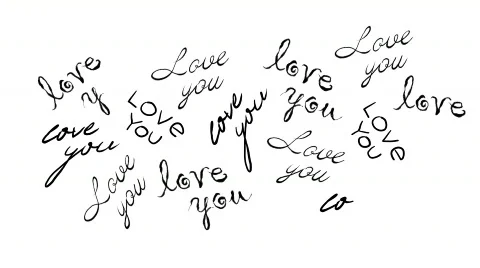 love
y
Love
you
love
you
Love
you
love
cove
you
LOVE
YOU
cove
you
LOVE
YOU
Love
you
love
you
Love
you
co